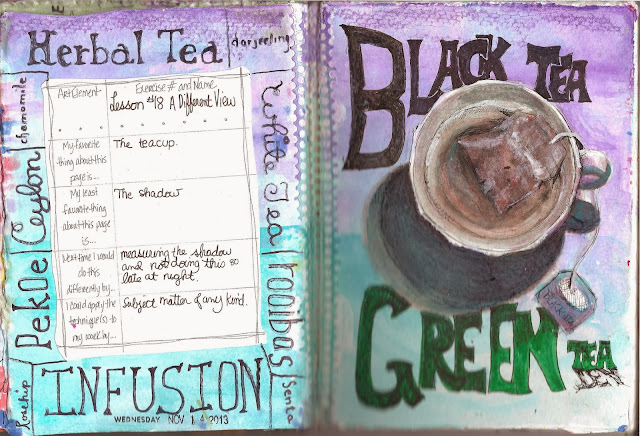 Herbal Tea
darjeeling
chamomile
Ceylon
Pekoe
Rosehip
Art Element
Exercise # and Name
Lesson #18 A Different View
My favorite
thing about this
page is...
The teacup.
My least
favorite thing
about this page
is...
The shadow
Next time I would
do this
differently by...
measuring the shadow
and not doing this so
late at night.
I could apply the
technique(s) to
my work by...
Subject matter of any kind.
White Tea
rooibas
Senta
INFUSION
WEDNESDAY NOV 1 4 2013
BLACK TEA
GREEN TEA